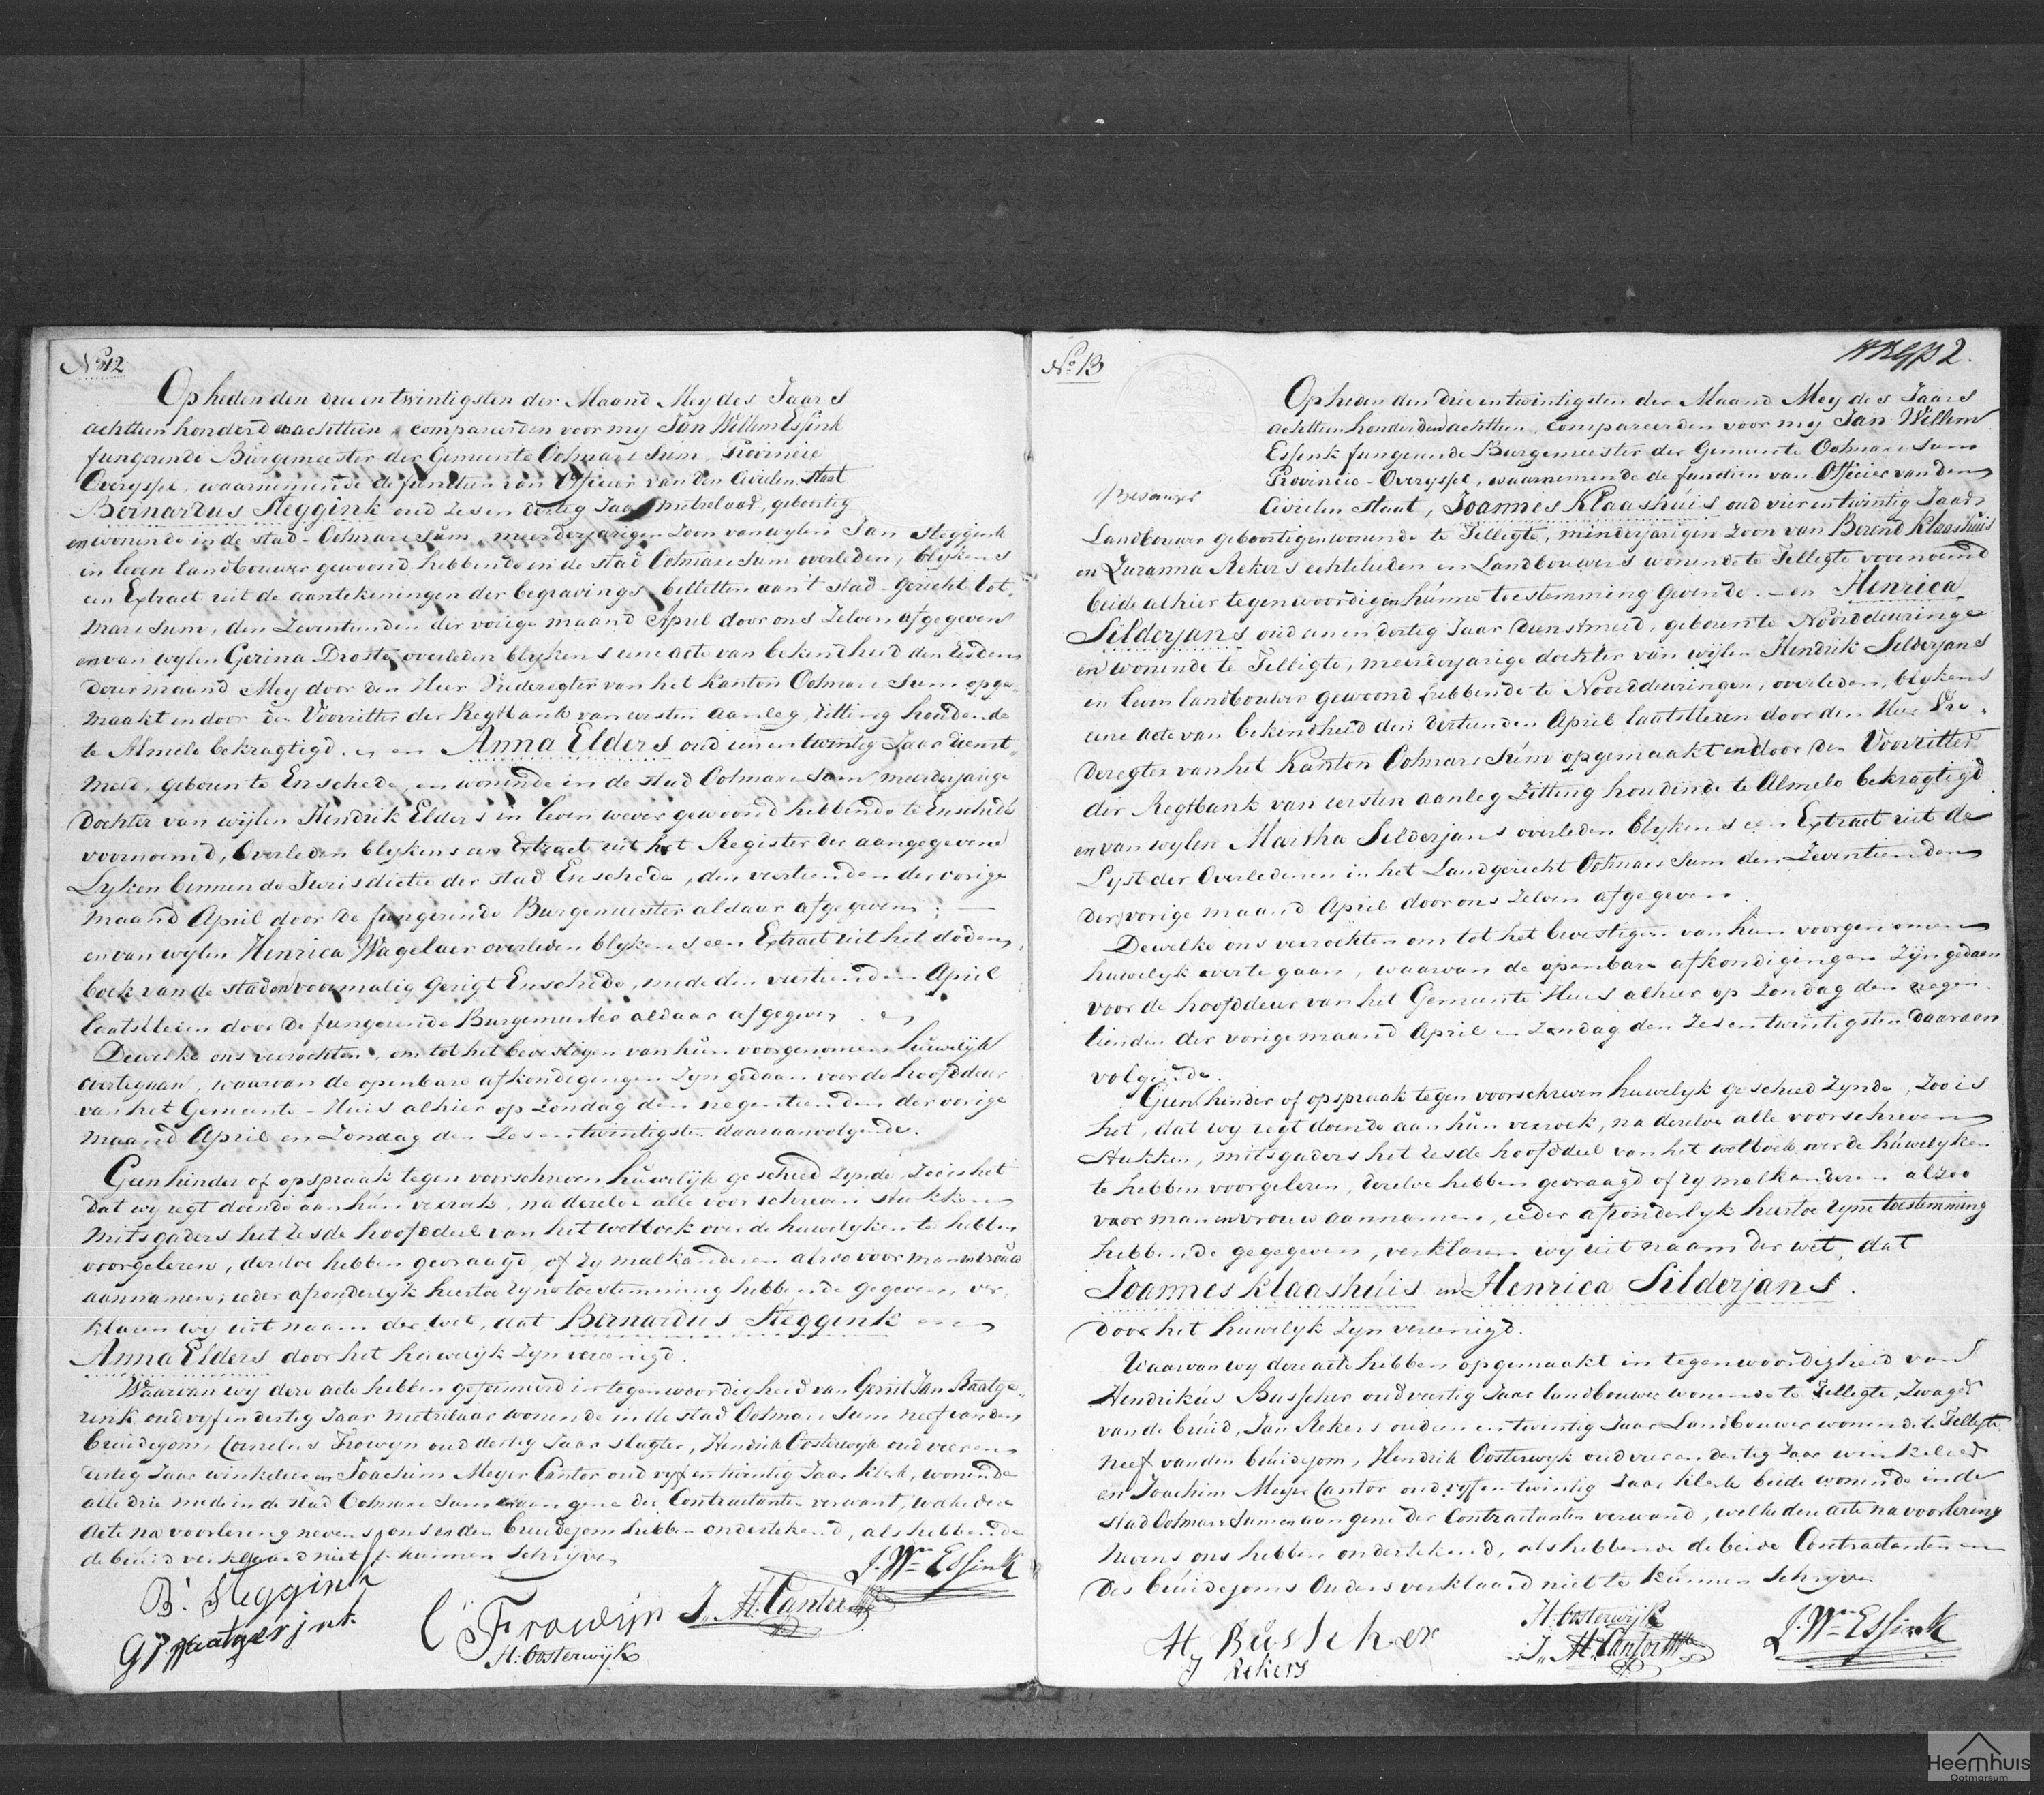 No 12
Op heden den drie en twintigsten der Maand Mey des Jaars
achttien honderd en achttien, compareerden voor my Jan Willem Essink
fungerende Burgemeester der Gemeente Ootmarssum, Provincie
Overyssel, waarnemende de functien van Officier van den Civielen Staat
Bernardus Steggink oud zes en dertig Jaar metselaar, geboortig
en wonende in de stad Ootmarssum, meerderjarigen zoon van wylen Jan Steggink
in leven landbouwer gewoond hebbende in de stad Ootmarssum overleden, blykens
een Extract uit de aantekeningen der begravings billetten aan 't stad-Gericht Oot-
marssum, den zeventienden der vorige maand April door ons zelven afgegeven
en van wylen Gerina Droste, overleden blykens eene acte van bekendheid den
dezer maand Mey door den Heer Vrederegter van het Kanton Ootmarssum opge-
maakt en door den Voorzitter der Regtbank van eersten aanleg, zitting houdende
te Almelo bekragtigd. en Anna Elders oud een en twintig Jaar dienst-
meid, geboren te Enschede, en wonende in de stad Ootmarssum meerderjarige
dochter van wijlen Hendrik Elders in leven wever gewoond hebbende te Enschede
voornoemd, overleden blykens een Extract uit het Register der aangegevene
Lyken binnen de Jurisdictie der stad Enschede, den veertienden der vorige
maand April door de fungerende Burgemeester aldaar afgegeven;
en van wylen Henrica Wagelaer overleden blykens een Extract uit het doden
boek van de stad en voormalig Gerigt Enschede, mede den veertienden April
laatstleden door de fungerende Burgemeester aldaar afgegeven.
Dewelke ons verzochten, om tot het bevestigen van hun voorgenomen huwelijk
overtegaan, waarvan de openbare afkondigingen zyn gedaan voor de hoofddeur
van het Gemeente-Huis alhier op Zondag den negentienden der vorige
maand April en Zondag den zes en twintigsten daaraanvolgende.
Geen hinder of opspraak tegen voorschreven huwelijk geschied zynde, zoo is het
dat wy regt doende aan hun verzoek, na derzelve alle voorschreven stukken
mitsgaders het zesde hoofddeel van het wetboek over de huwelyken te hebben
voorgelezen, derzelve hebben gevraagd, of zy malkanderen alzoo voor man en vrouw
aannamen, ieder afzonderlyk hiertoe zyne toestemming hebbende gegeven, ver-
klaren wy uit naam der wet, dat Bernardus Steggink en
Anna Elders door het huwelyk zyn vereenigd.
Waarvan wy deze acte hebben geformeerd in tegenwoordigheid van Gerrit Jan Raatge-
rink oud vyf en dertig Jaar metselaar wonende in de stad Ootmarssum neef van den
bruidegom, Cornelus Frowyn oud dertig Jaar slagter, Hendrik Oosterwyk oud vier en
dertig Jaar winkelier en Joachim Meyer Cantor oud vyf en twintig Jaar Klerk, wonende
alle drie mede in de stad Ootmarssum en aan gene der Contractanten verwant, welke deze
acte na voorlezing nevens ons en den bruidegom hebben ondertekend, als hebbende
de bruid verklaard niet te kunnen schryven
J. Wm Essink
B. Steggink
G J Raatgerink
C Frowijn
H. Oosterwijk
J. M. Cantor
No 13
2.
Op heden den drie en twintigsten der Maand Mey des Jaars
achttien honderd en achttien, compareerden voor my Jan Willem
Essink fungerende Burgemeester der Gemeente Ootmarssum
Provincie Overyssel, waarnemende de functien van Officier van den
Civielen Staat, Joannes Klaashúis oud vier en twintig Jaar
Landbouwer geboortig en wonende te Tilligte, minderjarigen zoon van Berend Klaashuis
en Zuzanna Rekers echtelieden en Landbouwers wonende te Tilligte voornoemd
beide alhier tegenwoordig en hunne toestemming gevende. - en Henrica
Silderjans oud een en dertig Jaar dienstmeid, geboren te Noorddeuringe
en wonende te Tilligte, meerderjarige dochter van wijlen Hendrik Silderjans
in leven landbouwer gewoond hebbende te Noorddeuringen, overleden, blykens
eene acte van bekendheid den April laatstleden door den Heer Vre-
deregter van het Kanton Ootmarssum opgemaakt en door den Voorzitter
der Regtbank van eersten aanleg zitting houdende te Almelo bekragtigd
en van wylen Martha Silderjans overleden blykens een Extract uit de
Lyst der Overledenen in het Landgericht Ootmarssum den zeventienden
der vorige maand April door ons zelven afgegeven.
Dewelke ons verzochten om tot het bevestigen van hun voorgenomen
huwelyk over te gaan, waarvan de openbare afkondigingen zyn gedaan
voor de hoofddeur van het Gemeente Huis alhier op Zondag den negen-
tienden der vorige maand April en Zondag den zes en twintigsten daaraan
volgende.
Geen hinder of opspraak tegen voorschreven huwelyk geschied zynde, zoo is
het, dat wy regt doende aan hun verzoek, na derzelve alle voorschreven
stukken, mitsgaders het zesde hoofddeel van het wetboek over de huwelyken
te hebben voorgelezen, derzelve hebben gevraagd of zy malkanderen alzoo
voor man en vrouw aannamen, ieder afzonderlyk hiertoe zyne toestemming
hebbende gegegeven, verklaren wy uit naam der wet, dat
Joannes Klaashúis en Henrica Silderjans.
door het huwelyk zyn vereenigd.
Waarvan wy deze acte hebben opgemaakt in tegenwoordigheid van
Hendrikus Busscher oud veertig Jaar landbouwer wonende te Tilligte, Zwager
van de bruid, Jan Rekers oud een en twintig Jaar Landbouwer wonende te Tilligte
neef van den bruidegom, Hendrik Oosterwyk oud vier en dertig Jaar winkelier
en Joachim Meyer Cantor oud vyf en twintig Jaar klerk beide wonende in de
stad Ootmarssum en aan gene der Contractanten verwand, welke deze acte na voorlezing
nevens ons hebben ondertekend, als hebbende de beide Contractanten en
des bruidegoms Ouders verklaard niet te kunnen schryven
H Büsscher
J Rekers
H. Oosterwijk
J. M. Cantor
J. Wm Essink
Heemhuis
Ootmarsum